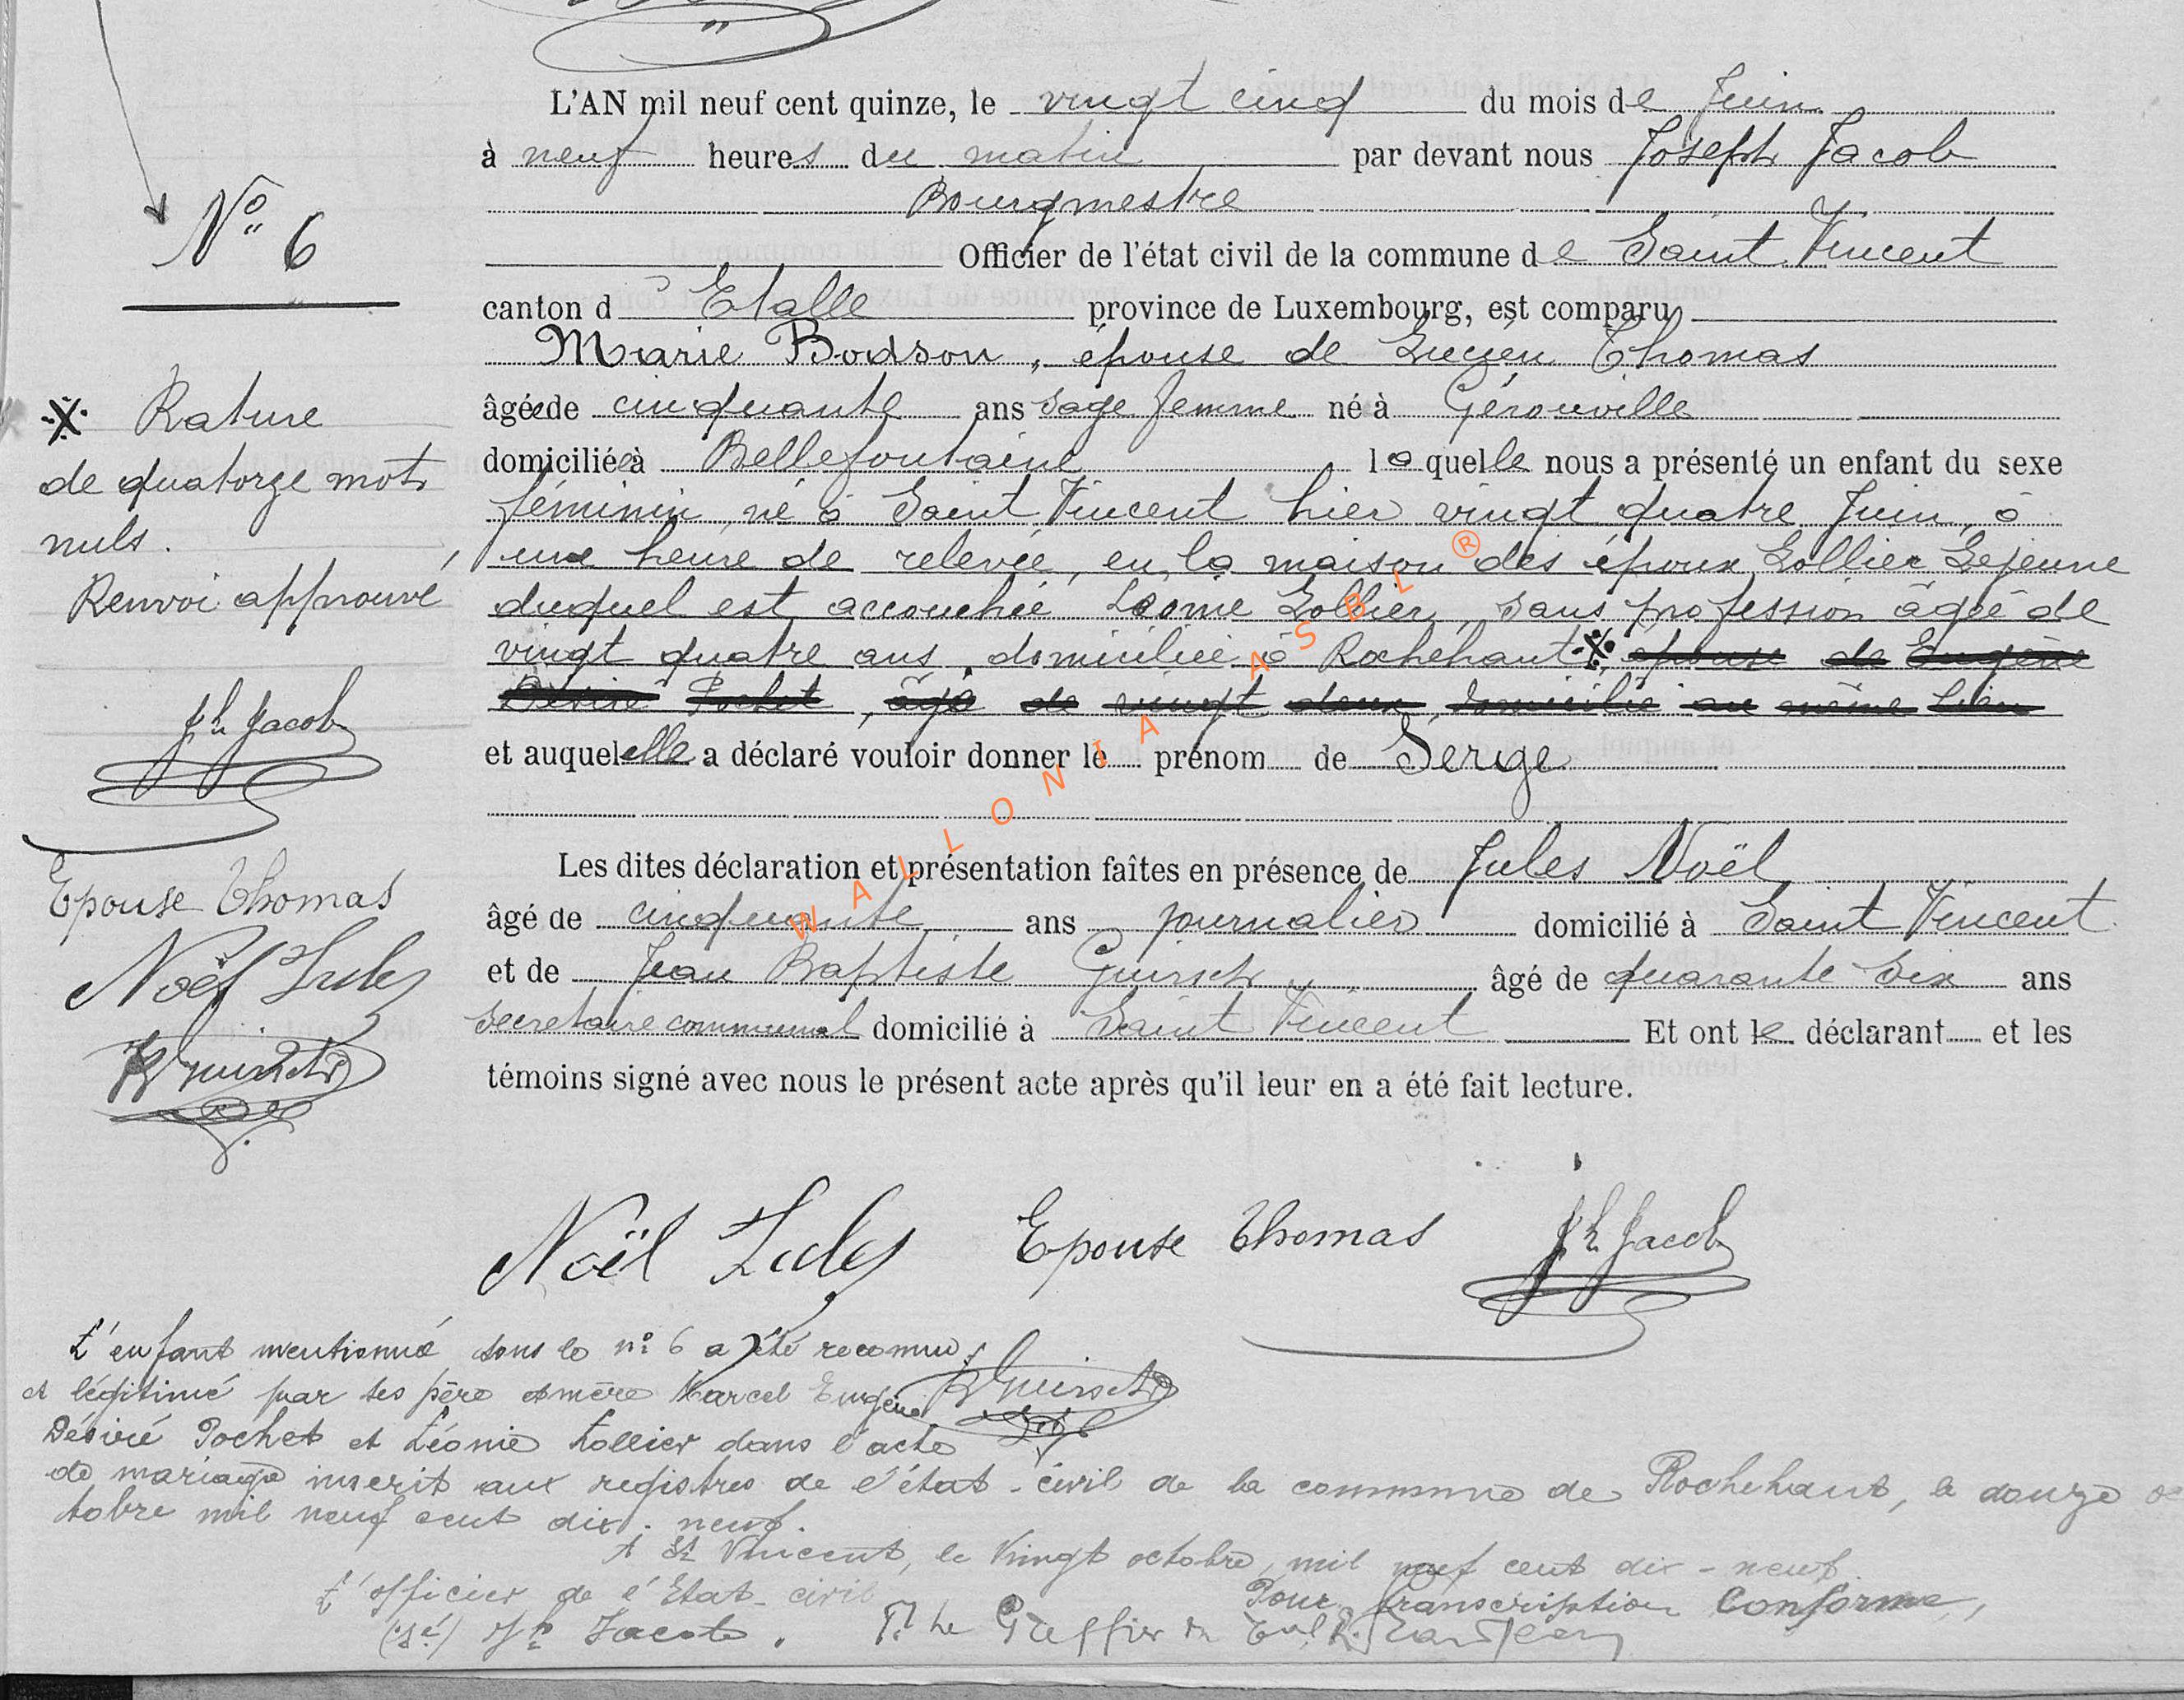 L'AN mil neuf cent quinze, le vingt cinq du mois de Juin
à neuf heures du matin par devant nous Joseph Jacob
Bourgmestre
Nº 6
Officier de l'état civil de la commune de Saint Vincent
canton d Etalle province de Luxembourg, est comparu
Marie Bodson, épouse de Lucien Thomas
âgée de cinquante ans sage femme né à Gérouville
domiciliée à Bellefontaine laquelle nous a présenté un enfant du sexe
féminin, né à Saint Vincent hier vingt quatre Juin, à
une heure de relevée, en la maison des époux Lollier Lejeune
duquel est accouchée Léonie Lollier, sans profession âgée de
vingt quatre ans, domiciliée à Rochehaut ※, épouse de Eugène
Désiré Pochet, âgé de vingt deux, domicilié au même lieu
et auquel elle a déclaré vouloir donner le prénom de Serge
※ Rature
de quatorze mots
nuls.
Renvoi approuvé
Jh Jacob
Epouse Thomas
Noël Jules
JBGuirsch
Les dites déclaration et présentation faîtes en présence de Jules Noël,
âgé de cinquante ans journalier domicilié à Saint Vincent
et de Jean Baptiste Guirsch âgé de quarante six ans
secretaire communal domicilié à Saint Vincent Et ont le déclarant et les
témoins signé avec nous le présent acte après qu'il leur en a été fait lecture.
Noël Jules Epouse Thomas Jh Jacob
JBGuirsch
L'enfant mentionné sous le nº 6 a été reconnu
et légitimé par ses père et mère Marcel Eugène
Désiré Pochet et Léonie Lollier dans l'acte
de mariage inscrit aux registres de l'état-civil de la commune de Rochehaut, le douze oc
tobre mil neuf cent dix-neuf.
A St Vincent, le vingt octobre mil neuf cent dix-neuf.
L'officier de l'Etat-civil Pour transcription Conforme,
(sé) Jh Jacob. Le Greffier
WALLONIA ASBL ®